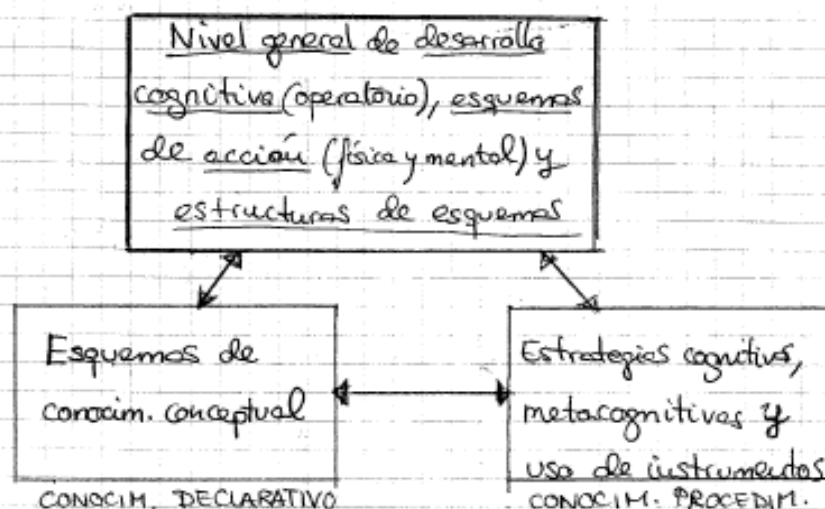 Nivel general de desarrollo
cognitivo (operatorio), esquemas
de acción (física y mental) y
estructuras de esquemas
Esquemas de
conocim. conceptual
CONOCIM. DECLARATIVO
Estrategias cognitivas,
metacognitivas y
uso de instrumentos
CONOCIM. PROCEDIM.